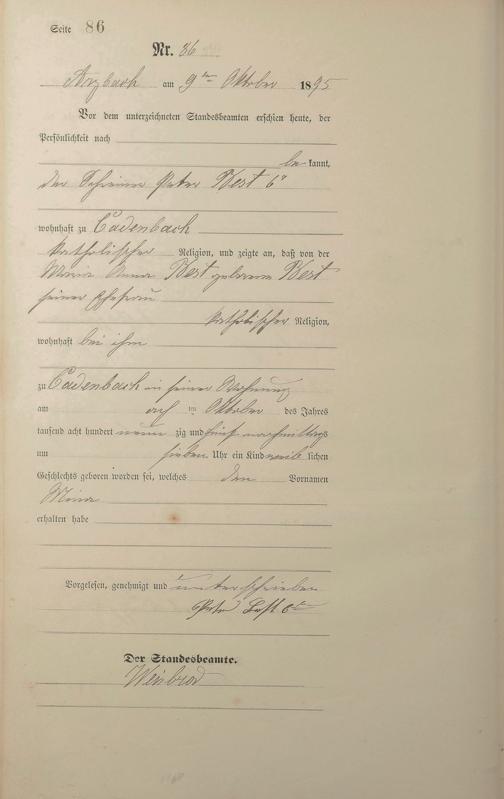 Seite 86
Nr. 86
Arzbach am 9ten Oktober 1895
Vor dem unterzeichneten Standesbeamten erschien heute, der
Persönlichkeit nach
be kannt,
der Schreiner Peter 6r
wohnhaft zu Cadenbach
katholischer Religion, und zeigte an, daß von der
Maria Anna geborene
seiner Ehefrau
katholischer Religion,
wohnhaft bei ihm
zu Cadenbach in seiner Wohnung
am acht ten Oktober des Jahres
tausend acht hundert neun zig und fünf nachmittags
um sieben Uhr ein Kind weib lichen
Geschlechts geboren worden sei, welches den Vornamen
erhalten habe
Vorgelesen, genehmigt und unterschrieben
Peter
Der Standesbeamte.
Weisbrod